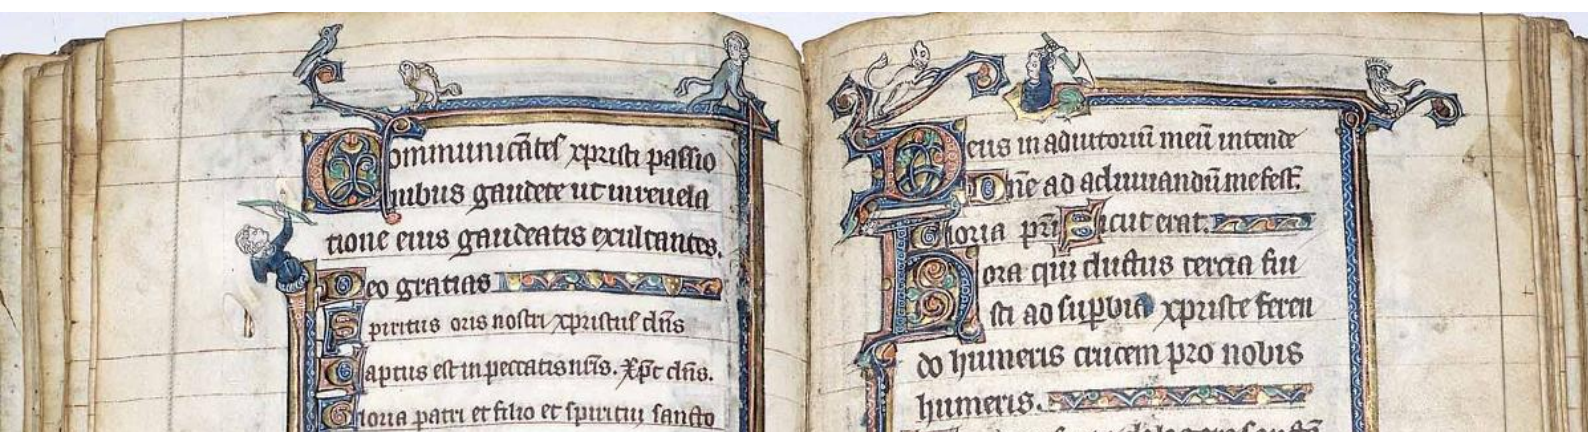 Communicātes xpristi passio
nibus gaudete ut in reuela
tione eius gaudeatis exultantes.
Deo gratias
Spiritus oris nostri xpristus dn̄s
Captus est in peccatis nr̄is. Xp̄c dn̄s.
Gloria patri et filio et spiritui sancto
Deus in adiutoriū meū intende
Dn̄e ad adiuuandū me fest̄.
Gloria pr̄i Sicut erat.
Hora qui ductus tercia fui
sti ad suppliā xpriste feren
do humeris crucem pro nobis
humeris.